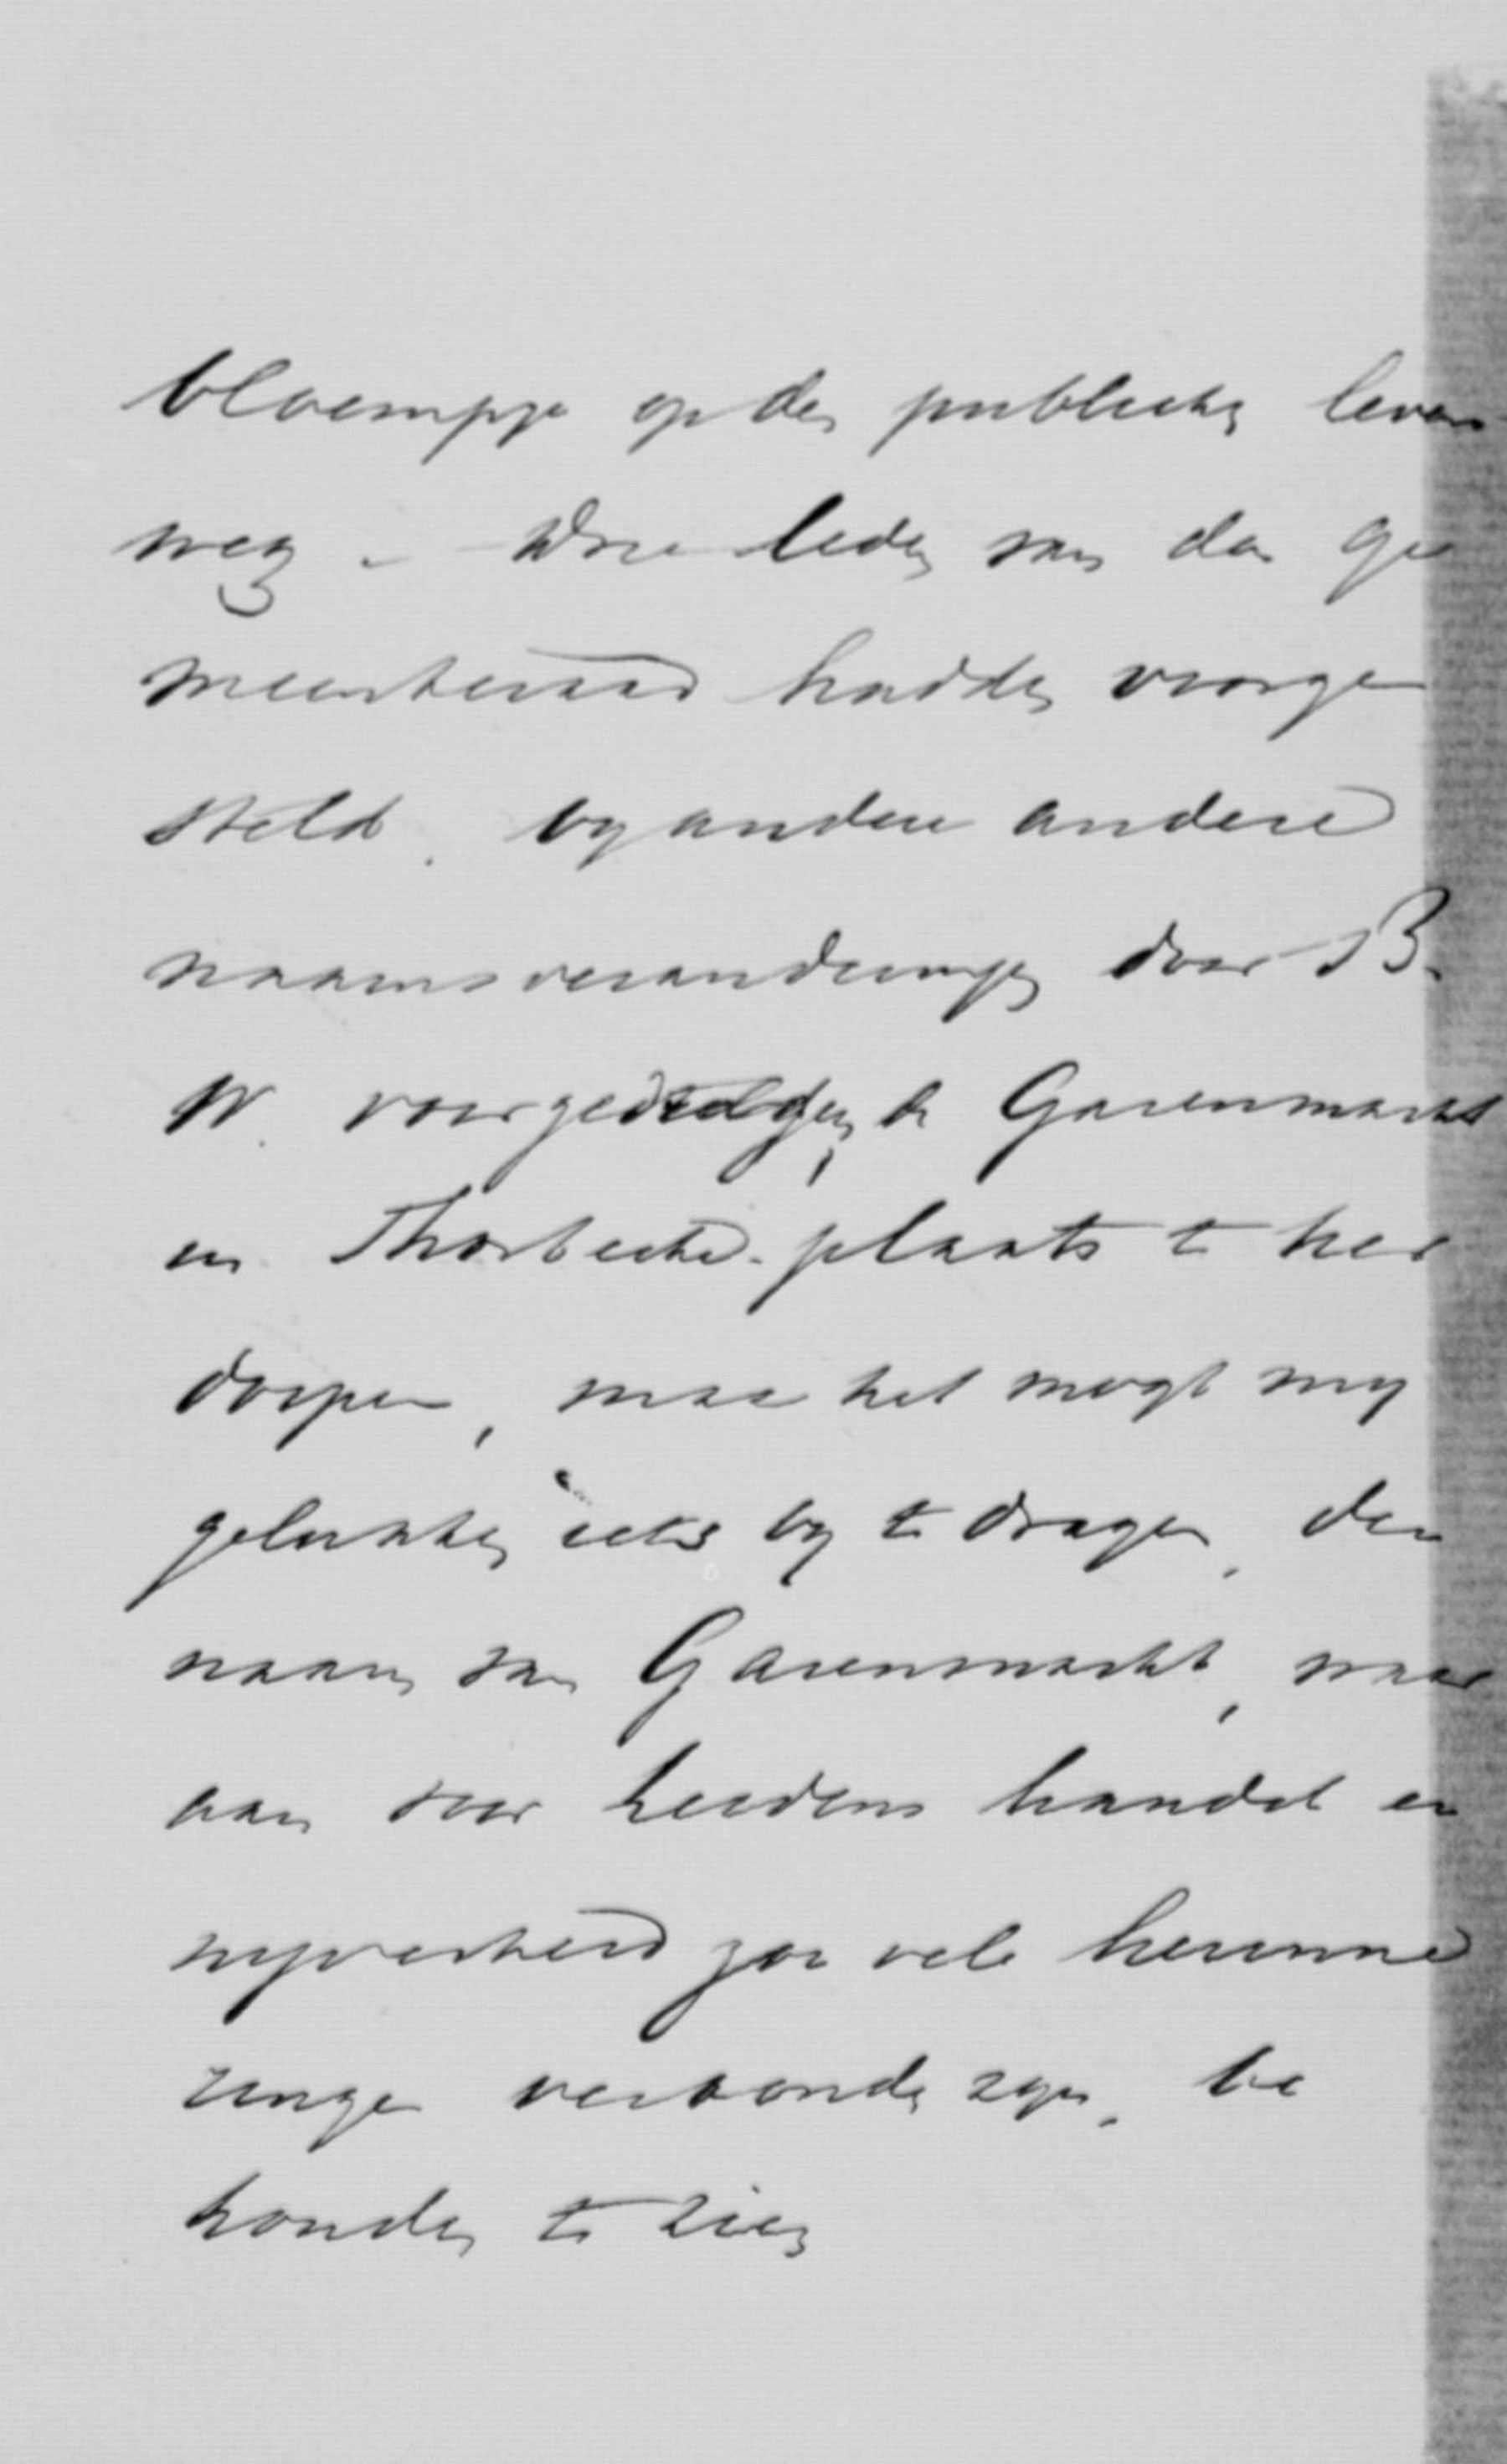 bloempje op den publieken levens
weg. – Drie leden van den ge
meenteraad hadden voorge
steld, by andere andere
naamsveranderingen door B.
W. voorgedragen, de Garenmarkt
in Thorbecke-plaats te her
doopen, maar het mogt my
gelukken iets by te dragen, den
naam van Garenmarkt, waar
aan voor Leidens handel en
nyverheid zoo vele herinne
ringen verbonden zyn, be
houden te zien